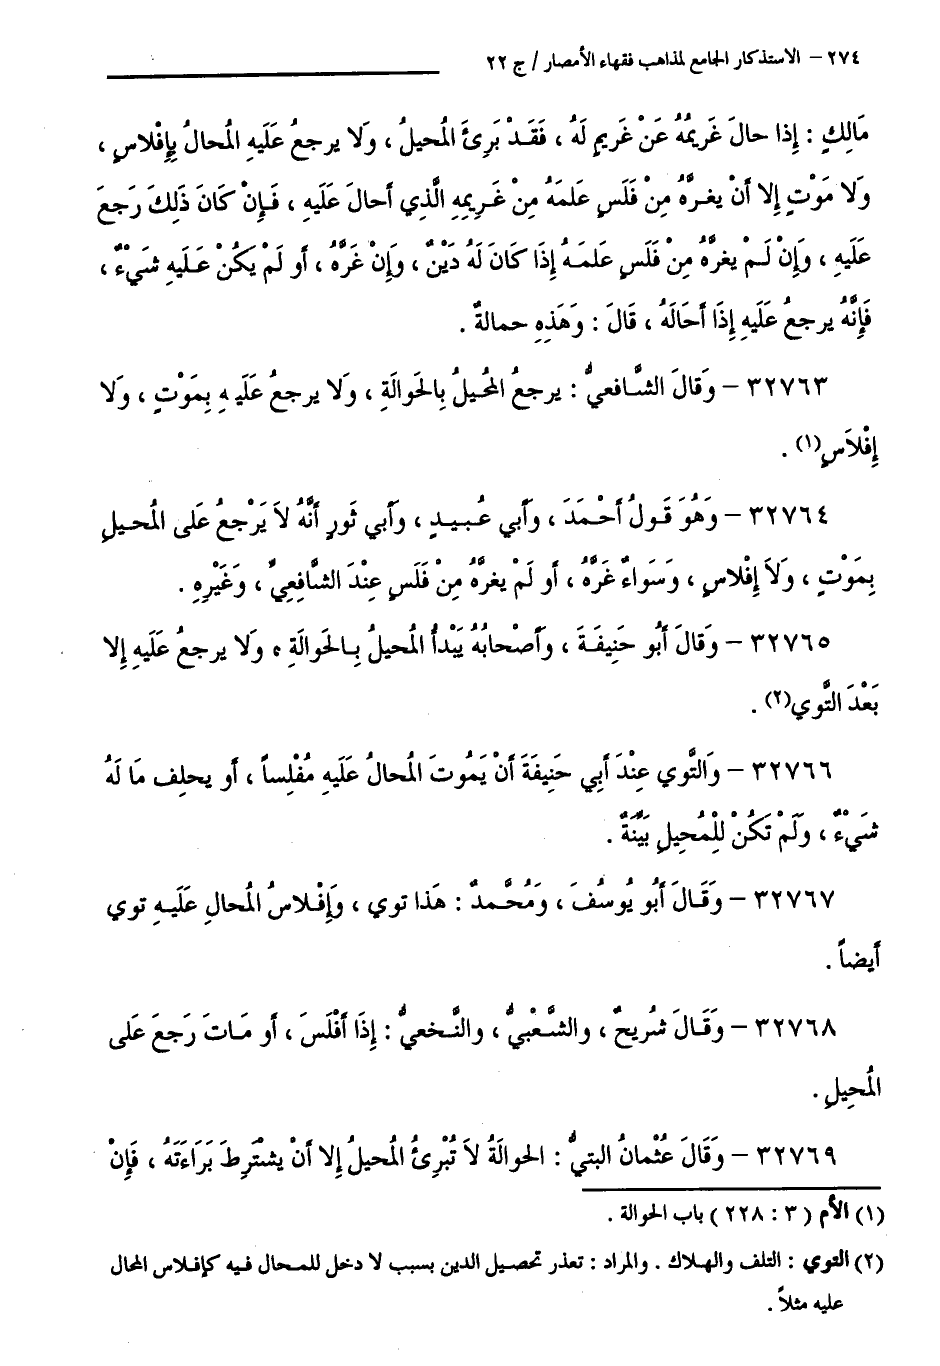 ٢٧٤ – الاستذكار الجامع لمذاهب فقهاء الأمصار / ج ٢٢
مَالِكٍ : إِذا حالَ غَرِيمُهُ عَنْ غَرِيمٍ لَهُ ، فَقَدْ بَرِئَ المُحيلُ ، وَلا يرجعُ عَلَيهِ المُحالُ بِإِفْلاسٍ ،
وَلا مَوْتٍ إِلا أَنْ يغرَّهُ مِنْ فَلَسٍ عَلمَهُ مِنْ غَرِيمِهِ الَّذِي أحالَ عَلَيهِ ، فَإِنْ كَانَ ذَلِكَ رَجَعَ
عَلَيهِ ، وَإِنْ لَمْ يغرَّهُ مِنْ فَلَسٍ عَلمَهُ إِذَا كَانَ لَهُ دَيْنٌ ، وَإِنْ غَرَّهُ ، أو لَمْ يَكُنْ عَلَيهِ شَيْءٌ ،
فَإِنَّهُ يرجعُ عَلَيهِ إِذَا أَحَالَهُ ، قَالَ : وَهَذِهِ حمالةٌ .
٣٢٧٦٣ – وَقالَ الشَّافعيُّ : يرجعُ المُحيلُ بِالحَوالَةِ ، وَلا يرجعُ عَلَيهِ بِمَوْتٍ ، وَلا
إِفْلاَسٍ(١) .
٣٢٧٦٤ – وَهُوَ قَولُ أَحْمَدَ ، وَأَبي عُبيدٍ ، وَأَبي ثَورٍ أنَّهُ لاَ يَرْجعُ عَلى المُحيلِ
بِمَوْتٍ ، وَلاَ إِفْلاسٍ ، وَسَواءٌ غَرَّهُ ، أو لَمْ يغرَّهُ مِنْ فَلَسٍ عِنْدَ الشَّافِعِيِّ ، وَغَيْرِهِ .
٣٢٧٦٥ – وَقالَ أَبُو حَنِيفَةَ ، وَأَصْحابُهُ يَبْدأُ المُحيلُ بِالحَوالَةِ ، وَلا يرجعُ عَلَيهِ إِلا
بَعْدَ التَّوي(٢) .
٣٢٧٦٦ – وَالتَّوي عِنْدَ أَبِي حَنِيفَةَ أَنْ يَمُوتَ المُحالُ عَلَيهِ مُفْلِساً ، أو يحلِف مَا لَهُ
شَيْءٌ ، وَلَمْ تَكُنْ لِلْمُحيلِ بَيِّنَةٌ .
٣٢٧٦٧ – وَقَالَ أَبُو يُوسُفَ ، وَمُحَمَّدٌ : هَذا توي ، وَإِفْلاسُ المُحالِ عَلَيهِ توي
أيضاً .
٣٢٧٦٨ – وَقَالَ شُرَيحٌ ، والشَّعْبيُّ ، والنَّخعيُّ : إِذَا أَفْلَسَ ، أو مَاتَ رَجعَ عَلى
المُحِيلِ .
٣٢٧٦٩ – وَقَالَ عُثْمانُ البتيُّ : الحوالَةُ لاَ تُبْرِئُ المُحيلُ إِلا أَنْ يشْتَرِطَ بَرَاءَتَهُ ، فَإِنْ
(١) الأم ( ٣ : ٢٢٨ ) باب الحوالة .
(٢) التوي : التلف والهلاك . والمراد : تعذر تحصيل الدين بسبب لا دخل للمحال فيه كإفلاس المحال
عليه مثلاً .